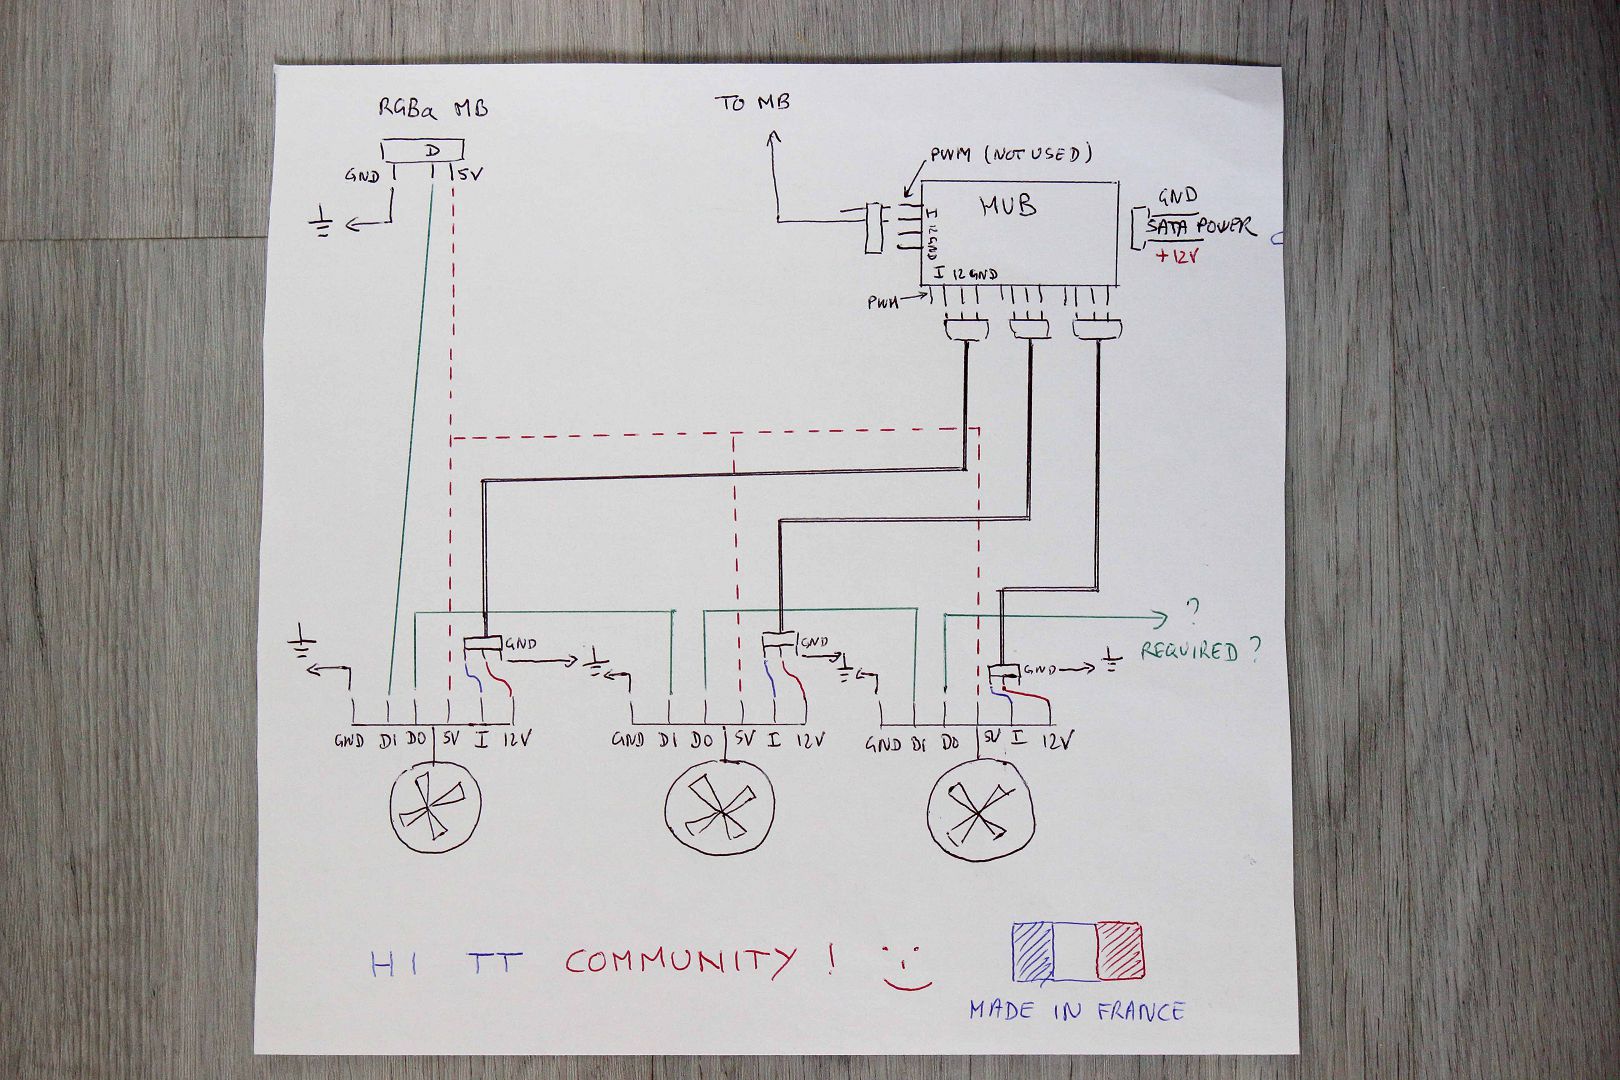 RGBa MB
TO MB
D
GND
5V
PWM (NOT USED)
HUB
I
12
GND
GND
SATA POWER
+12V
I 12 GND
PWM
?
REQUIRED ?
GND
GND
GND
GND DI DO 5V I 12V
GND DI DO 5V I 12V
GND DI DO 5V I 12V
HI TT COMMUNITY !
MADE IN FRANCE